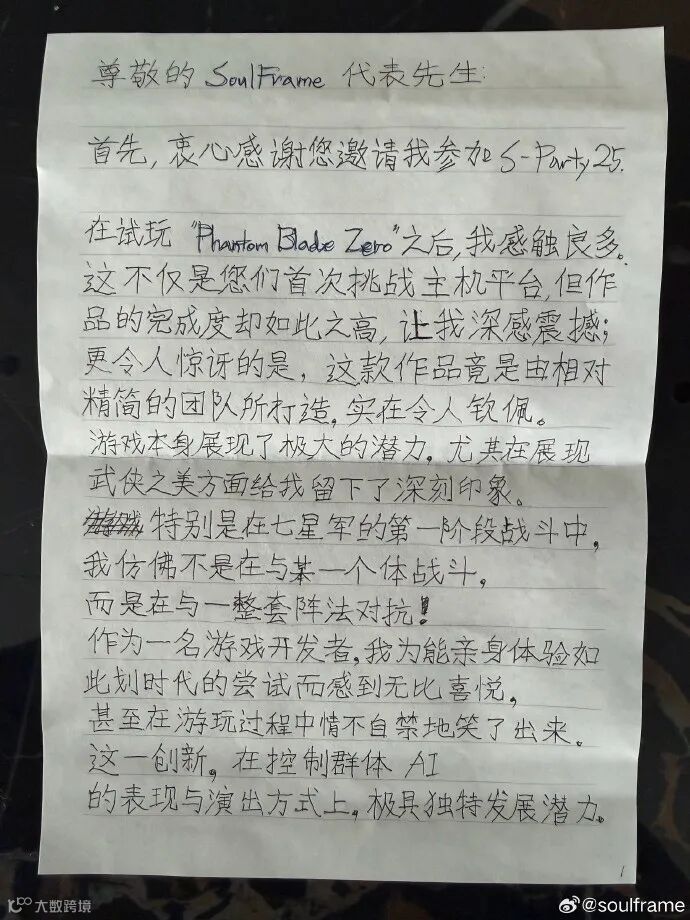 尊敬的 SoulFrame 代表先生:
首先,衷心感谢您邀请我参加 S-Party25.
在试玩 "Phantom Blade Zero"之后,我感触良多。
这不仅是您们首次挑战主机平台,但作
品的完成度却如此之高,让我深感震撼;
更令人惊讶的是,这款作品竟是由相对
精简的团队所打造,实在令人钦佩。
游戏本身展现了极大的潜力,尤其在展现
武侠之美方面给我留下了深刻印象。
特别是在七星军的第一阶段战斗中,
我仿佛不是在与某一个体战斗,
而是在与一整套阵法对抗!
作为一名游戏开发者,我为能亲身体验如
此划时代的尝试而感到无比喜悦,
甚至在游玩过程中情不自禁地笑了出来。
这一创新,在控制群体 AI
的表现与演出方式上,极具独特发展潜力。
1
大数跨境
@soulframe